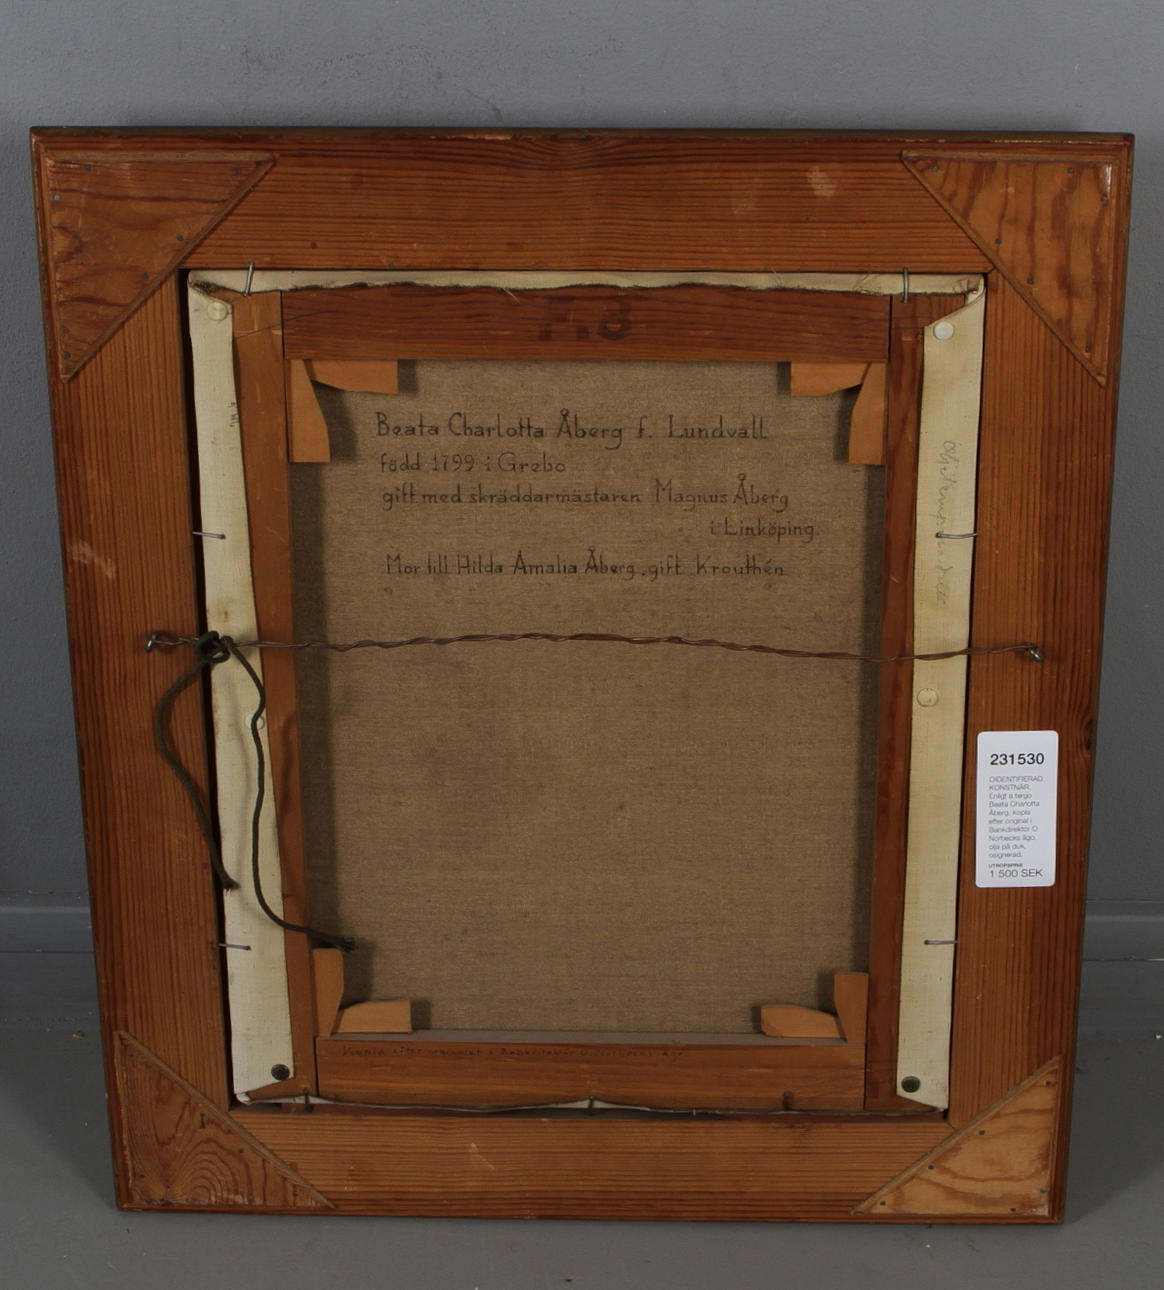 F.8
Beata Charlotta Åberg f. Lundvall
född 1799 i Grebo
gift med skräddarmästaren Magnus Åberg
i Linköping.
Mor till Hilda Amalia Åberg, gift Krouthén
231530
OIDENTIFIERAD
KONSTNÄR.
Enligt a tergo
Beata Charlotta
Åberg, kopia
efter original i
Bankdirektör O
Norbecks ägo,
olja på duk,
osignerad.
UTROPSPRIS
1 500 SEK
Kopia efter original i Bankdirektör O Norbecks ägo